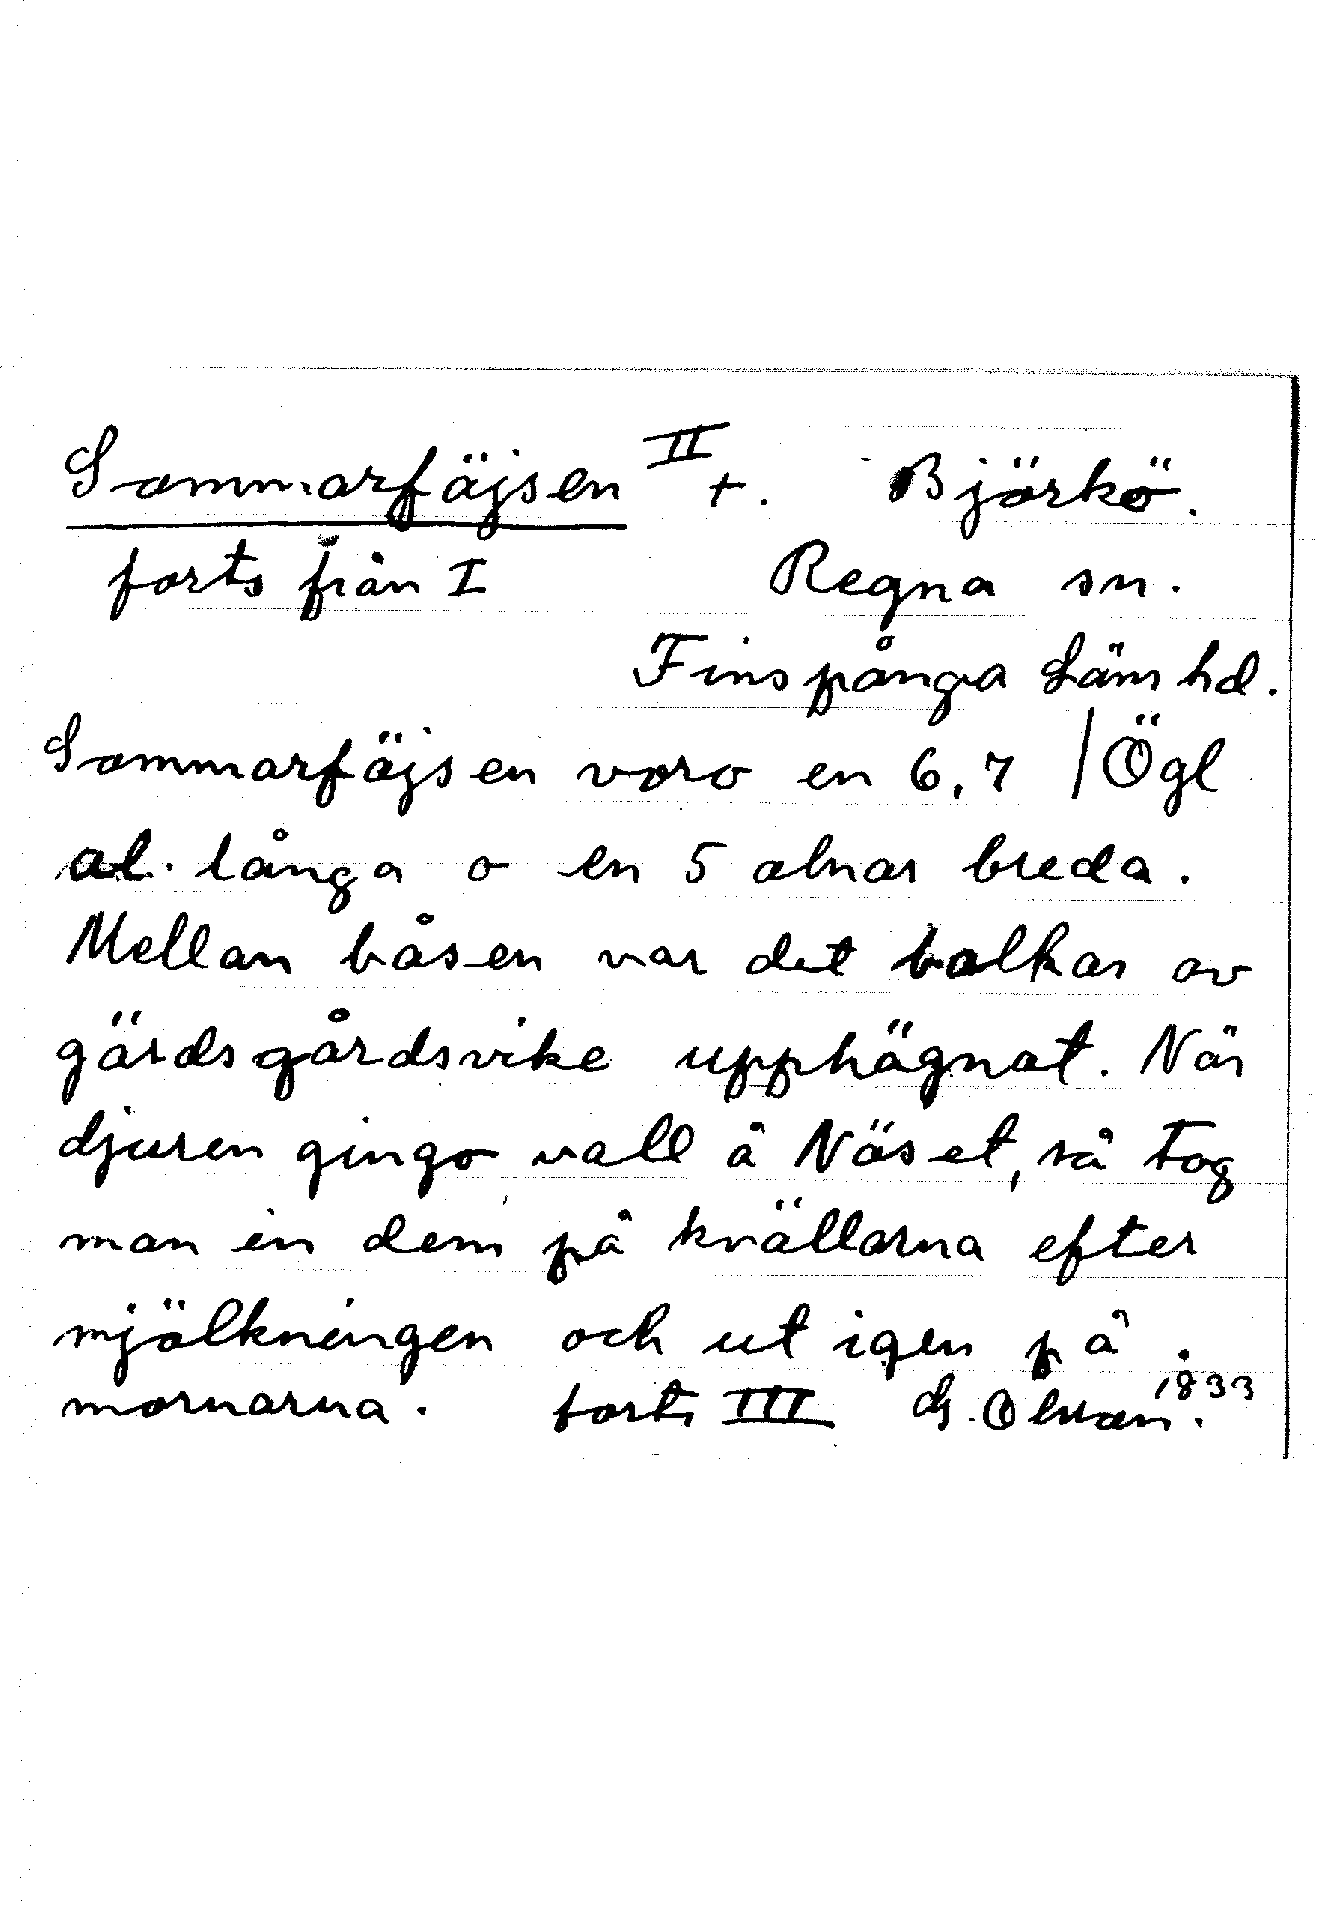 Sommarfäjsen II +. Björkö.
forts från I Regna sn.
Finspånga Läns hd.
Sommarfäjsen voro en 6,7 /Ögl
al. långa o en 5 alnar breda.
Mellan båsen var det balkar av
gärdsgårdsvike upphägnat. När
djuren gingo vall å Näset, så tog
man in dem på kvällarna efter
mjölkningen och ut igen på
mornarna. forts III G. 1833